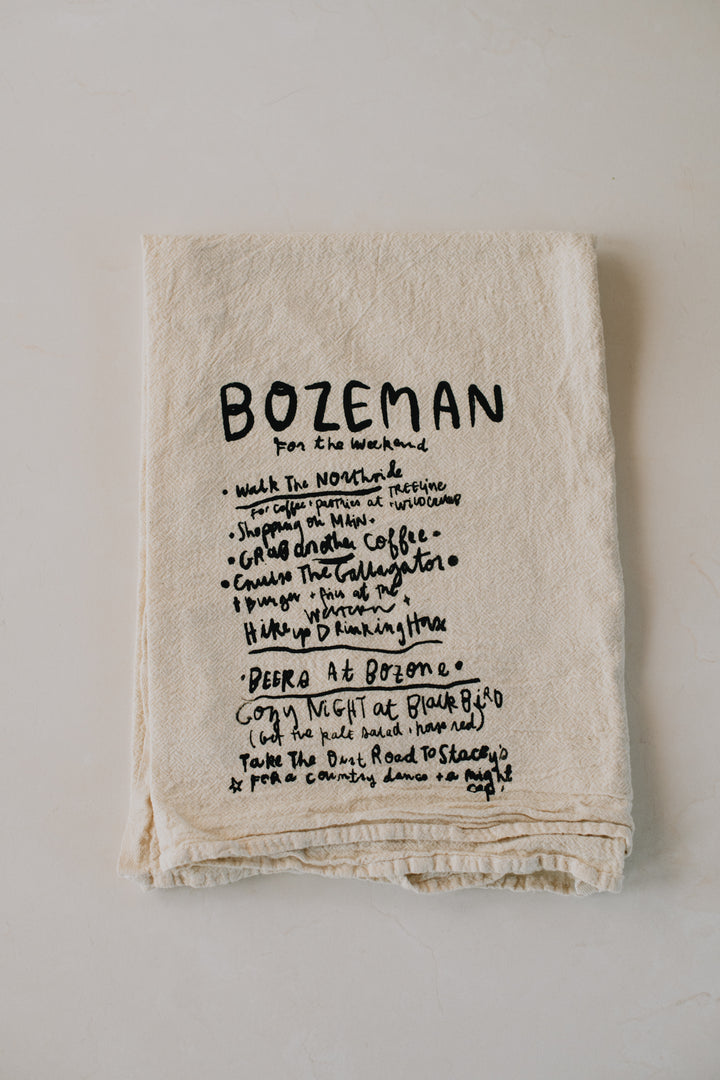 BOZEMAN
For the Weekend
• Walk The Northside
For coffee + pastries at TREELINE
+ WILD CRUMB
• Shopping on MAIN •
• GRAB another Coffee •
• Cruise The Gallagator •
+ Burger + fries at the
Western +
Hike up Drinking Horse
• BEERS At BOZONE •
Cozy NIGHT at BlackBIRD
(Get the kale salad + house red)
Take The Dirt Road To Stacey's
☆ FOR a country dance + a night
cap!